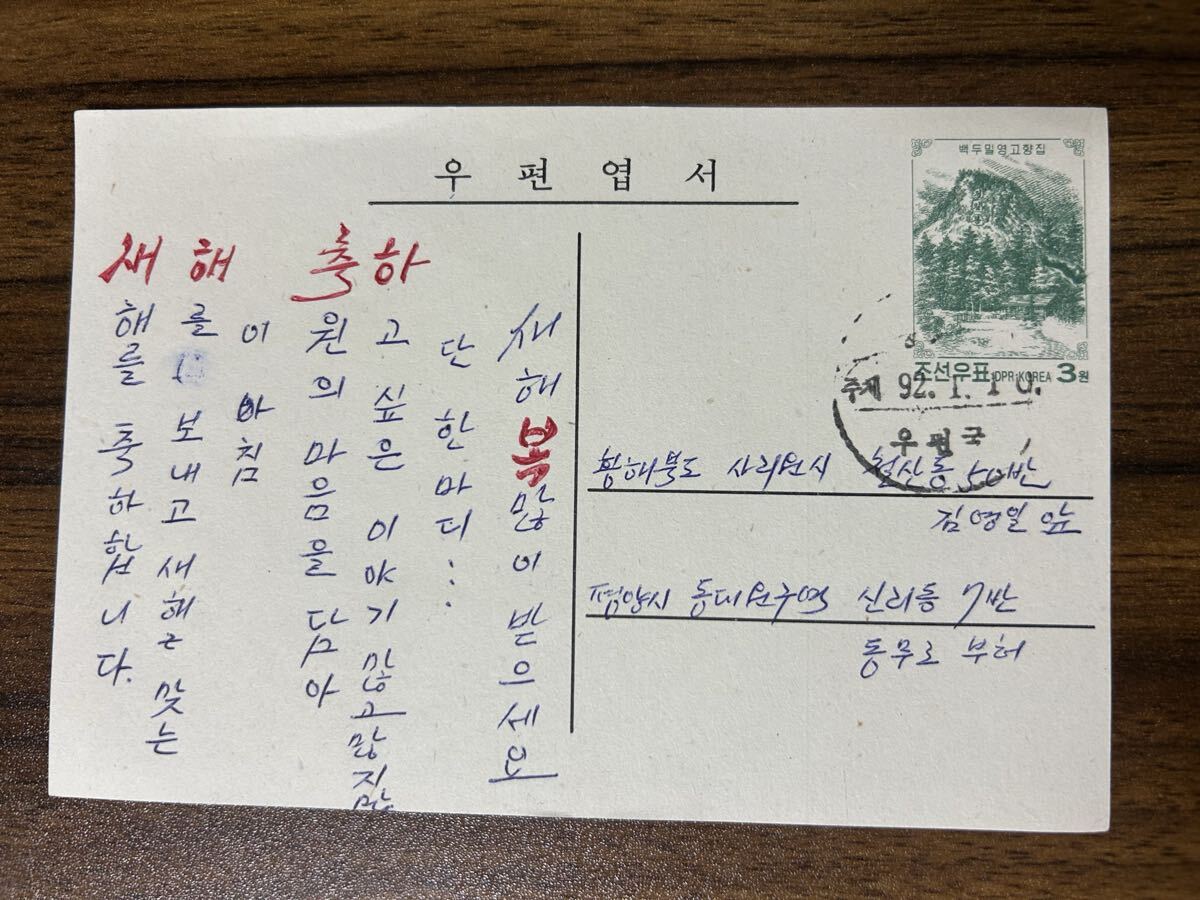 우편엽서
백두밀영고향집
조선우표 DPR KOREA 3원
주체 92. 1. 10.
우편국
새해 축하
해를 축하합니다.
를 보내고 새해를 맞는
이 아침
원의 마음을 담아
고 싶은 이야기 많고 많지만
단 한마디...
새해 복 많이 받으세요
황해북도 사리원시 철산동 50반
김영일 앞
평양시 동대원구역 신리동 7반
동무로 부터